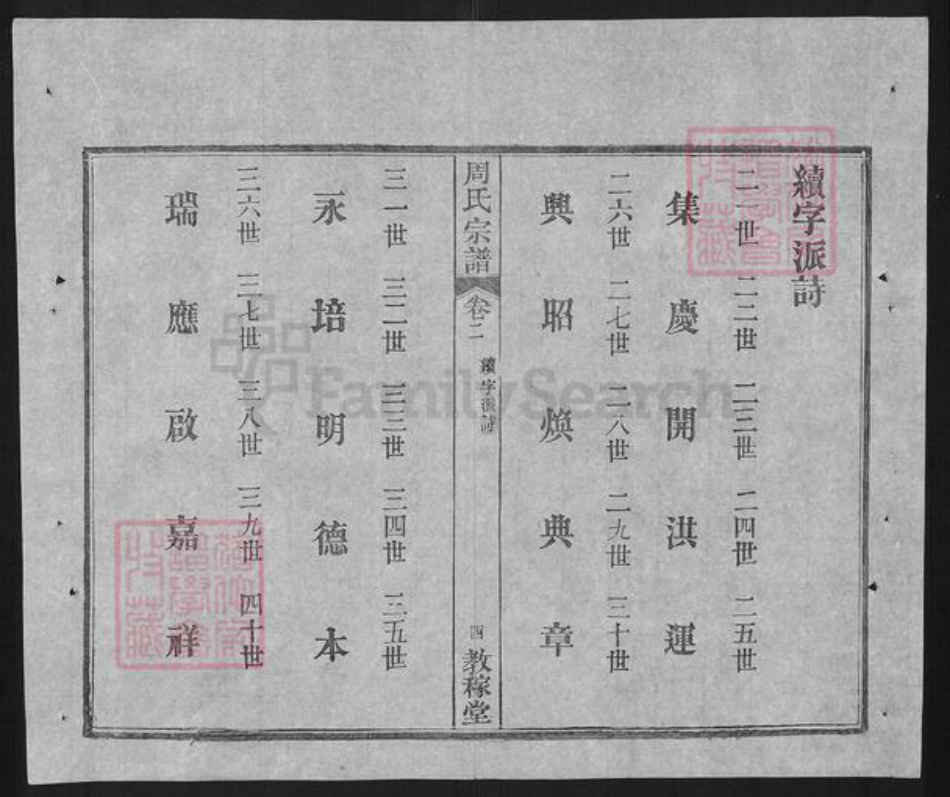 續字派詩
二一世 二二世 二三世 二四世 二五世
集 慶 開 洪 運
二六世 二七世 二八世 二九世 三十世
興 昭 煥 典 章
周氏宗譜 卷二 續字派詩 四 教稼堂
三一世 三二世 三三世 三四世 三五世
永 培 明 德 本
三六世 三七世 三八世 三九世 四十世
瑞 應 啟 嘉 祥
FamilySearch